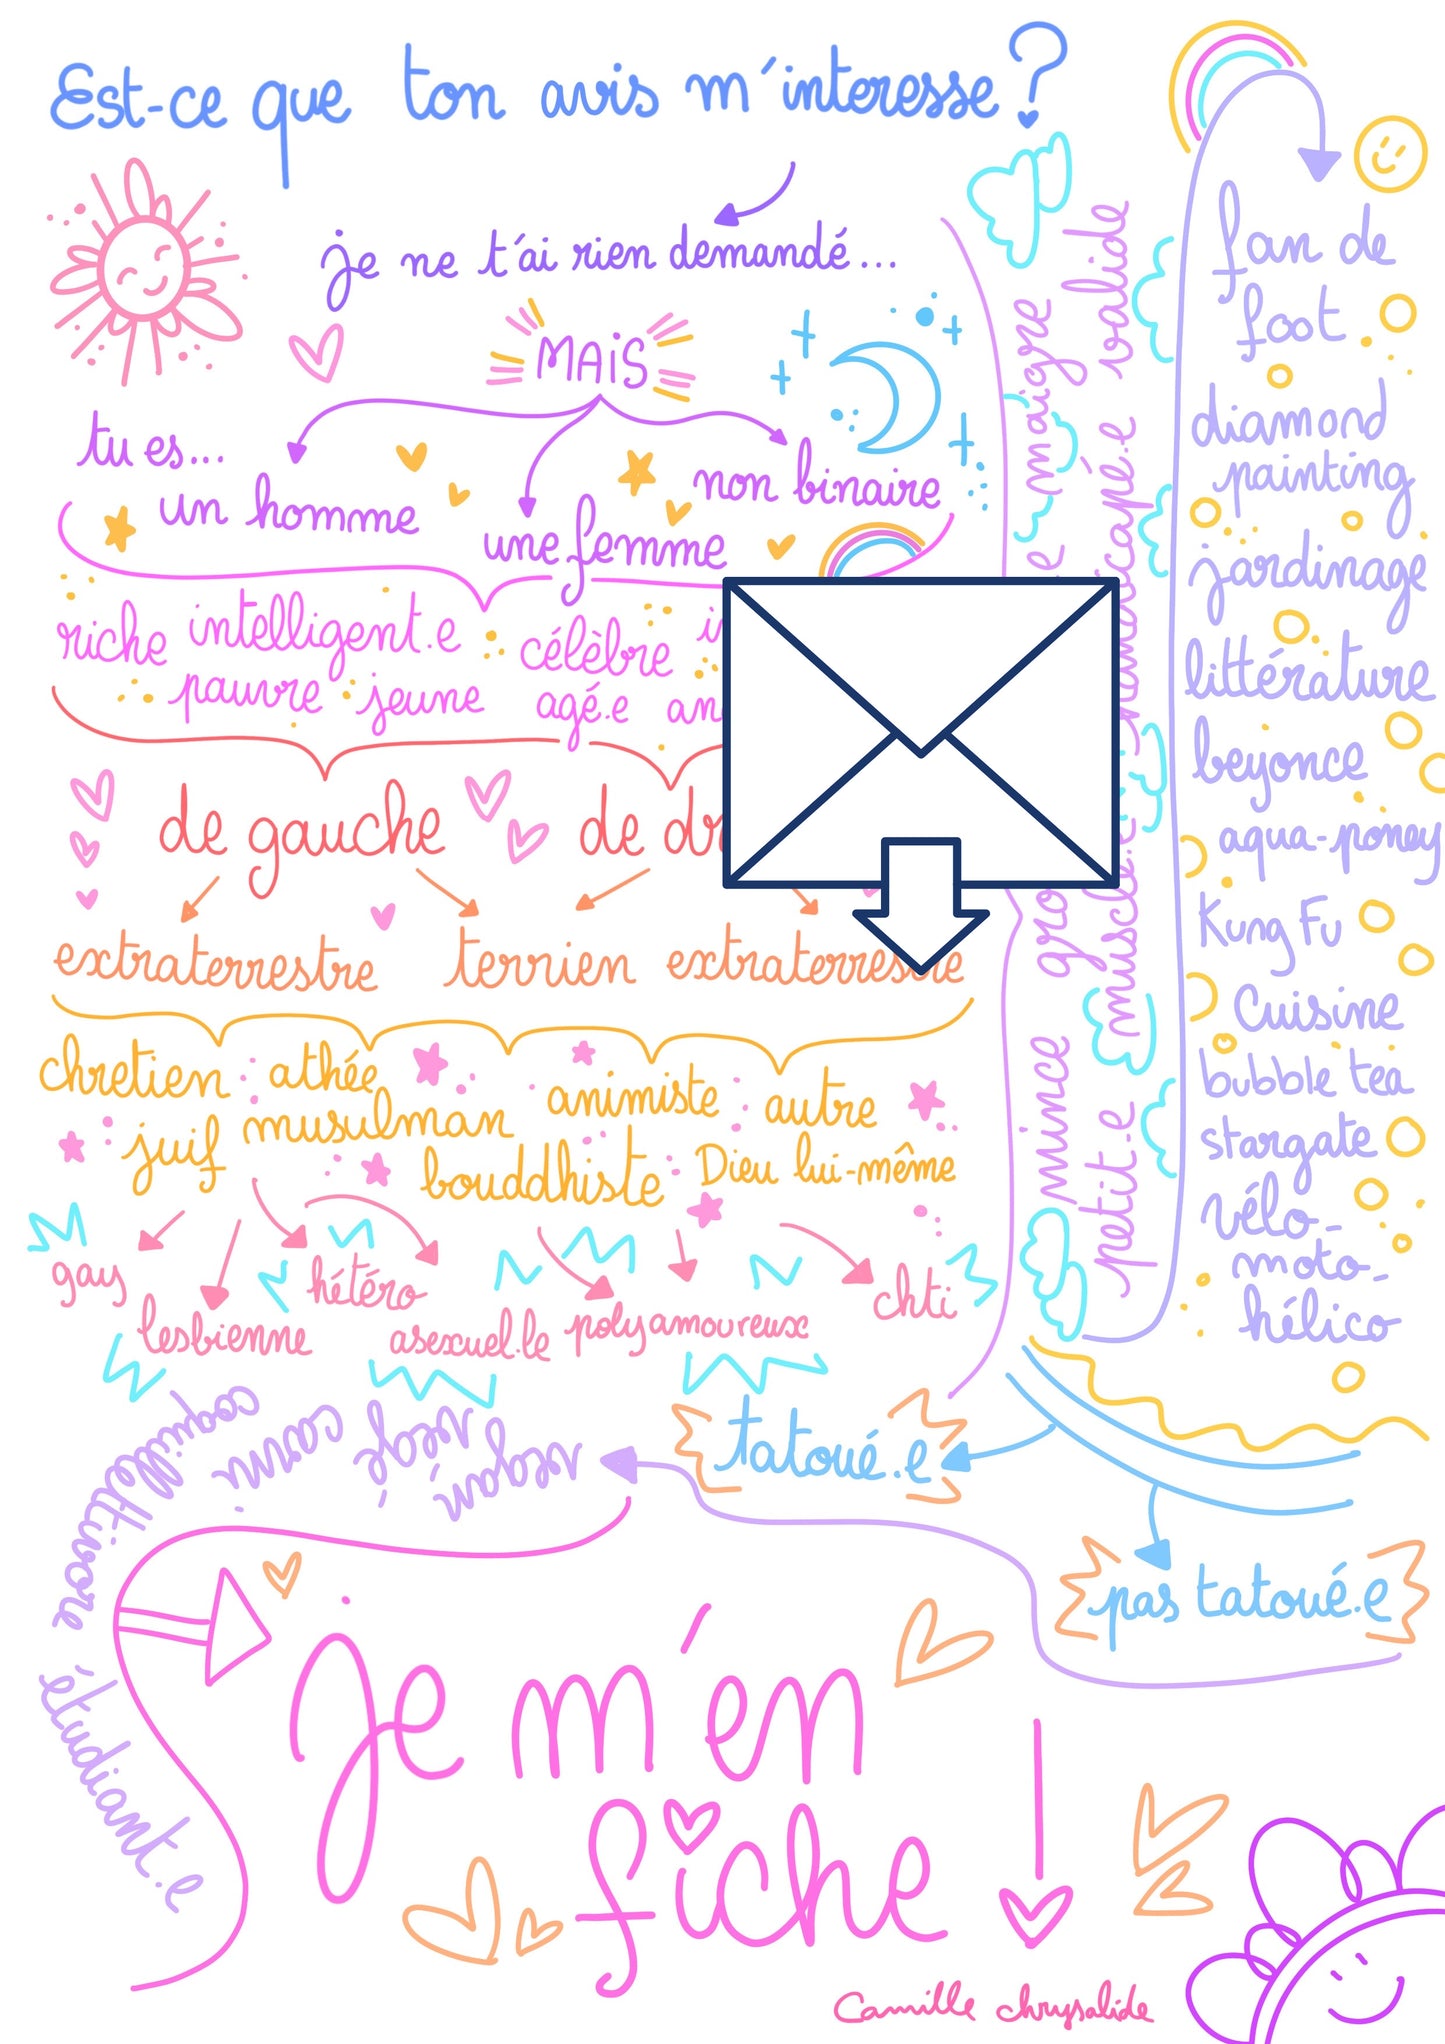 Est-ce que ton avis m'interesse ?
je ne t'ai rien demandé...
MAIS
tu es...
un homme
une femme
non binaire
riche intelligent.e célèbre
pauvre jeune agé.e
de gauche de
extraterrestre terrien extraterrestre
chretien athée animiste autre
juif musulman bouddhiste Dieu lui-même
gay lesbienne hétéro asexuel.le polyamoureux chti
mince maigre
petit.e musclé.e valide
fan de
foot
diamond
painting
jardinage
littérature
beyonce
aqua-poney
Kung Fu
Cuisine
bubble tea
stargate
vélo-
moto-
hélico
tatoué.e
pas tatoué.e
végan
végé
carni
coquillettivore
étudiant.e
je m'en
fiche
Camille chrysalide